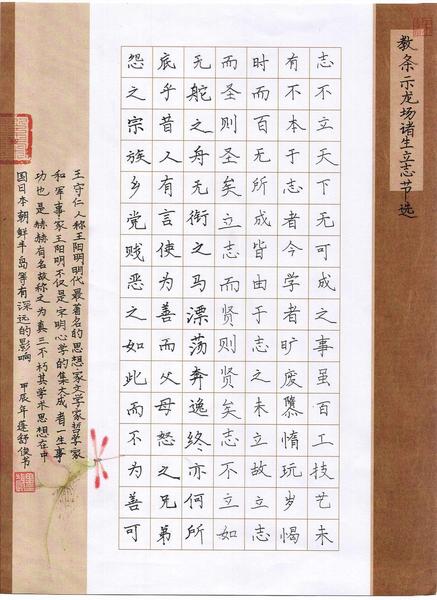 教条示龙场诸生立志节选
志不立天下无可成之事虽百工技艺未
有不本于志者今学者旷废隳惰玩岁愒
时而百无所成皆由于志之未立故立志
而圣则圣矣立志而贤则贤矣志不立如
无舵之舟无衔之马漂荡奔逸终亦何所
底乎昔人有言使为善而父母怒之兄弟
怨之宗族乡党贱恶之如此而不为善可
王守仁人称王阳明明代最著名的思想家文学家哲学家
和军事家王阳明不仅是宋明心学的集大成者一生事
功也是赫赫有名故称之为真三不朽其学术思想在中
国日本朝鲜半岛等有深远的影响
甲辰年莲舒俊书